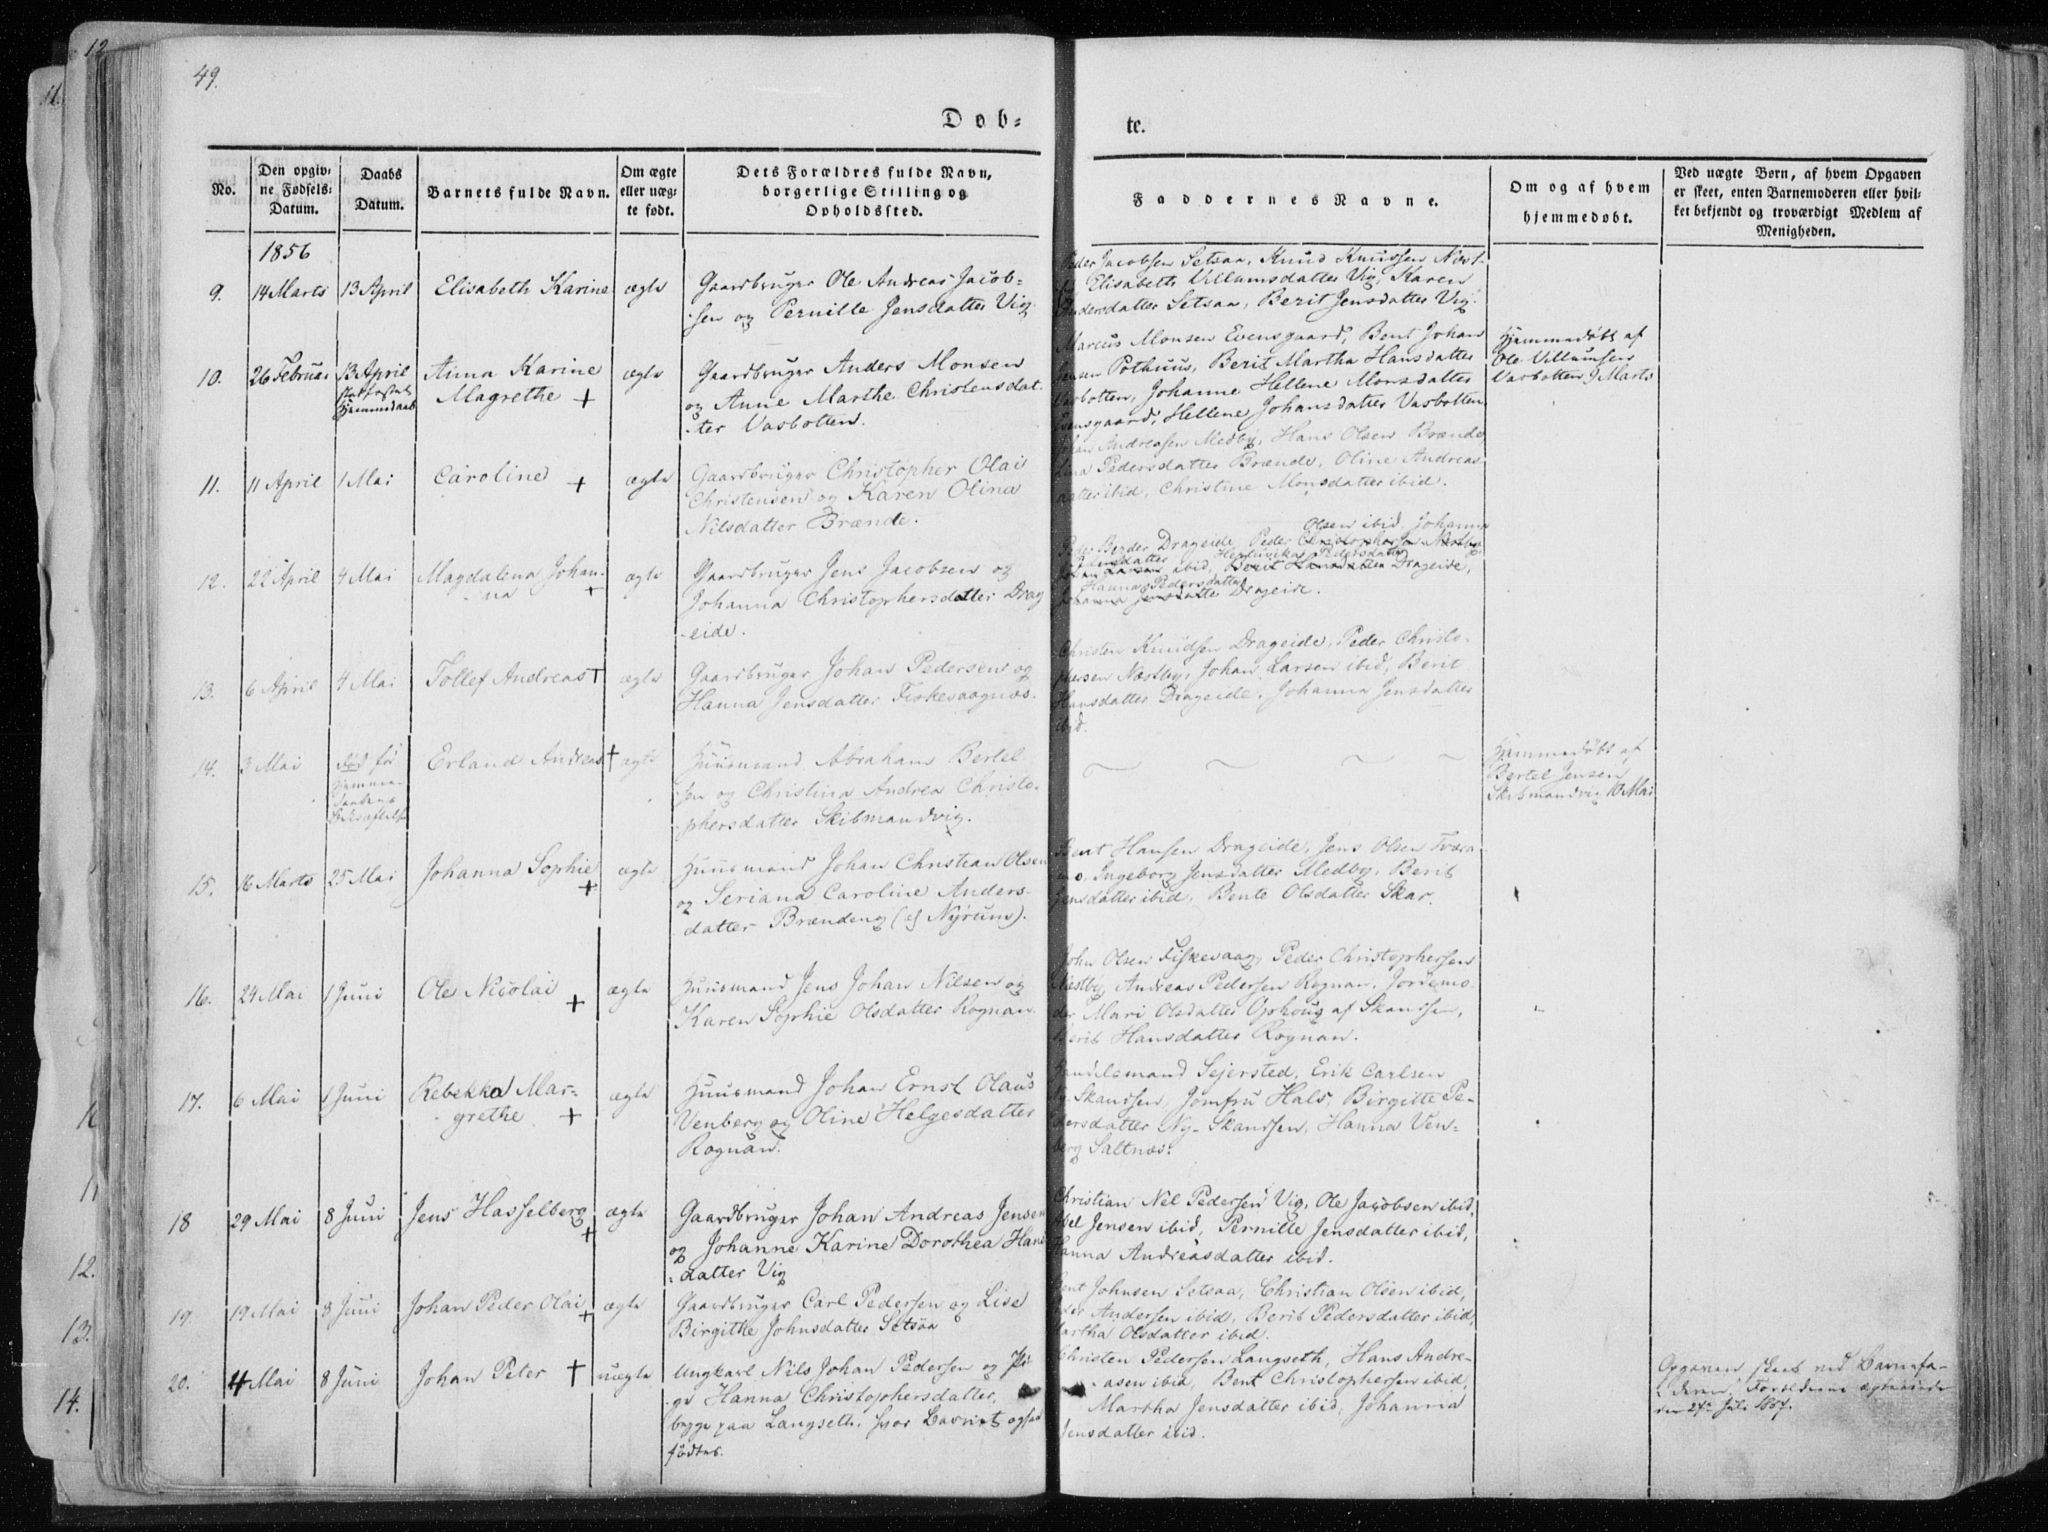 12
49.
11.
Døb-
te.
No.
Den opgiv-
ne Fødsels-
Datum.
Daabs
Datum.
Barnets fulde Navn.
Om ægte
eller uæg-
te født.
Dets Forældres fulde Navn,
borgerlige Stilling og
Opholdssted.
Faddernes Navne.
Om og af hvem
hjemmedøbt.
Ved uægte Børn, af hvem Opgaven
er skeet, enten Barnemoderen eller hvil-
ket bekjendt og troværdigt Medlem af
Menigheden.
1856
9. 14 Marts 13 April Elisabeth Karine ægte
Gaardbruger Ole Andreas Jacob-
sen og Pernille Jensdatter Vig
Peder Jacobsen Setsaa, Knud Knudsen Næst-
Elisabeth Villumsdatter Vig, Karen
Andersdatter Setsaa, Berit Jensdatter Vig.
10. 26 Februar 13 April
Hjemmedaab
Anna Karine
Magrethe +
ægte
Gaardbruger Anders Monsen
og Anne Marthe Christensdat-
ter Vasbotten.
Marcus Monsen Evensgaard, Bent Johan
Jensen Pothuus, Berit Martha Hansdatter
Vasbotten, Johanne Hellene Monsdatter
Evensgaard, Hellene Johansdatter Vasbotten
Hjemmedøbt af
Ole Villumsen
Vasbotten 9 Marts
11. 11 April 1 Mai Caroline + ægte
Gaardbruger Christopher Olai
Christensen og Karen Olina
Nilsdatter Brænde.
Johan Andreasen Medby, Hans Olsen Brænde,
Lina Pedersdatter Brænde, Oline Andreas-
datter ibid, Christine Monsdatter ibid.
12. 22 April 4 Mai Magdalena Johan-
na +
ægte
Gaardbruger Jens Jacobsen og
Johanna Christophersdatter Drag-
eide.
Olsen ibid, Johanna
Peder Bender Drageide, Peder Christophersen Næstby
Jensdatter Hendrikka Pedersdatter
Johan Larsen ibid, Berit Hansdatter Drageide,
Hanna Pedersdatter
Johanna Jensdatter Drageide.
13. 6 April 4 Mai Tollef Andreas + ægte
Gaardbruger Johan Pedersen og
Hanna Jensdatter Fiskevaagnæs.
Christen Knudsen Drageide, Peder Christo-
phersen Næstby, Johan Larsen ibid, Berit
Hansdatter Drageide, Johanna Jensdatter
ibid.
14. 3 Mai
Død før
Hjemme-
daabens
Erland Andreas + ægte
Huusmand Abraham Bertel-
sen og Christina Andrea Christo-
phersdatter Skibmandvig.
Hjemmedøbt af
Bertel Jensen
Skibmandvig 10 Mai
15. 16 Marts 25 Mai Johanna Sophie + ægte
Huusmand Johan Christian Olsen
og Seriana Caroline Anders-
datter Brændeng (af Nyrum).
Bent Hansen Drageide, Jens Olsen Tværa-
mo, Ingeborg Jensdatter Medby, Berit
Jensdatter ibid, Bente Olsdatter Skar.
16. 24 Mai 1 Juni Ole Nicolai + ægte
Huusmand Jens Johan Nilsen og
Karen Sophie Olsdatter Rognan
John Olsen Fiskevaag, Peder Christophersen
Næstby, Andreas Pedersen Rognan, Jordemo-
der Mari Olsdatter Ophoug af Skandsen,
Berit Hansdatter Rognan.
17. 6 Mai 1 Juni Rebekka Mar-
grethe +
ægte
Huusmand Johan Ernst Olaus
Venberg og Oline Helgesdatter
Rognan.
Handelsmand Sejersted, Erik Carlsen
Ny-Skandsen, Jomfru Hals, Birgitte Pe-
dersdatter Ny-Skandsen, Hanna Ven-
berg Saltnæs.
18 29 Mai 8 Juni Jens Hasselberg + ægte
Gaardbruger Johan Andreas Jensen
og Johanne Karine Dorothea Hans-
datter Vig
Christian Nel Pedersen Vig, Ole Jacobsen ibid,
Abel Jensen ibid, Pernille Jensdatter ibid,
Hanna Andreasdatter ibid.
19. 19 Mai 8 Juni Johan Peder Olai + ægte
Gaardbruger Carl Pedersen og Lise
Birgithe Johnsdatter Setsaa
Bent Johnsen Setsaa, Christian Olsen ibid,
Peder Andersen ibid, Berit Pedersdatter ibid,
Martha Olsdatter ibid.
20. 4 Mai 8 Juni Johan Peter + uægte
Ungkarl Nils Johan Pedersen og Pi-
ge Hanna Christophersdatter,
begge paa Langseth, hvor Barnet ogsaa
fødtes.
Christen Pedersen Langseth, Hans Andre-
asen ibid, Bent Christophersen ibid,
Martha Jensdatter ibid, Johanna
Jensdatter ibid.
Opgaven skeet ved Barnefa-
deren, Forældrene ægteviede
den 27de Juli 1857.
11
12.
13.
14.